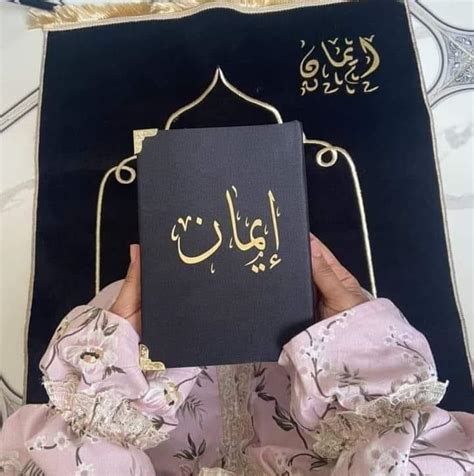 إيمان
إيمان